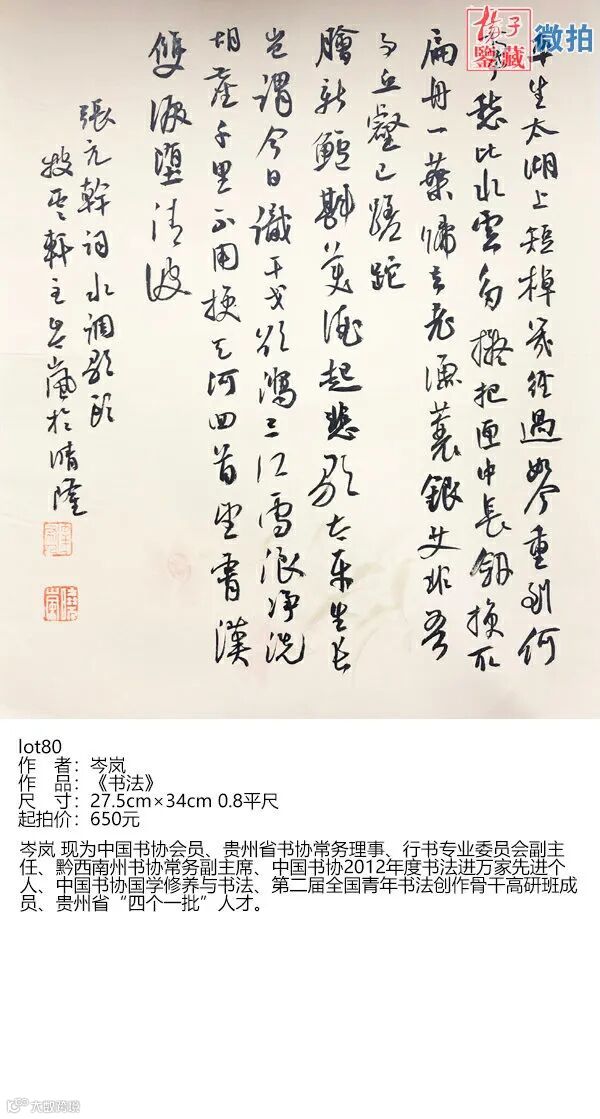 南子
鑒藏
微拍
生太湖上短棹幾經過如今重到何
愁比水雲多擬把匣中長劍換取
扁舟一葉歸去老漁蓑銀艾非吾
事丘壑已蹉跎
膾新鱸斟美酒起悲歌太平生長
豈謂今日識干戈欲瀉三江雪浪净洗
胡塵千里不用挽天河回首望霄漢
雙淚墮清波
張元幹詞水調歌頭
軒主岑嵐於晴隆
lot80
作 者：岑岚
作 品：《书法》
尺 寸：27.5cm×34cm 0.8平尺
起拍价：650元
岑岚 现为中国书协会员、贵州省书协常务理事、行书专业委员会副主
任、黔西南州书协常务副主席、中国书协2012年度书法进万家先进个
人、中国书协国学修养与书法、第二届全国青年书法创作骨干高研班成
员、贵州省“四个一批”人才。
大数跨境